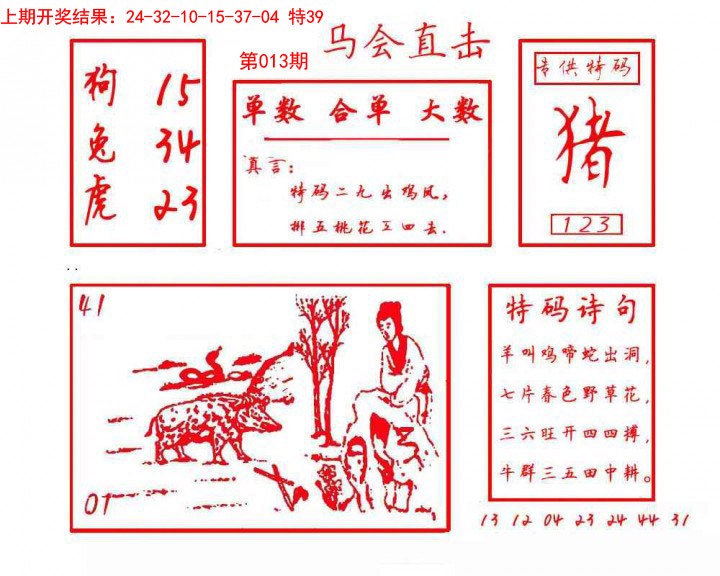 上期开奖结果：24-32-10-15-37-04 特39
马会直击
第013期
狗 15
兔 34
虎 23
单数 合单 大数
真言：
特码二九出鸡凤，
排五桃花三四去.
专供特码
猪
123
..
41
01
特码诗句
羊叫鸡啼蛇出洞，
七片春色野草花，
三六旺开四四搏，
牛群三五田中耕。
13 12 04 23 24 44 31